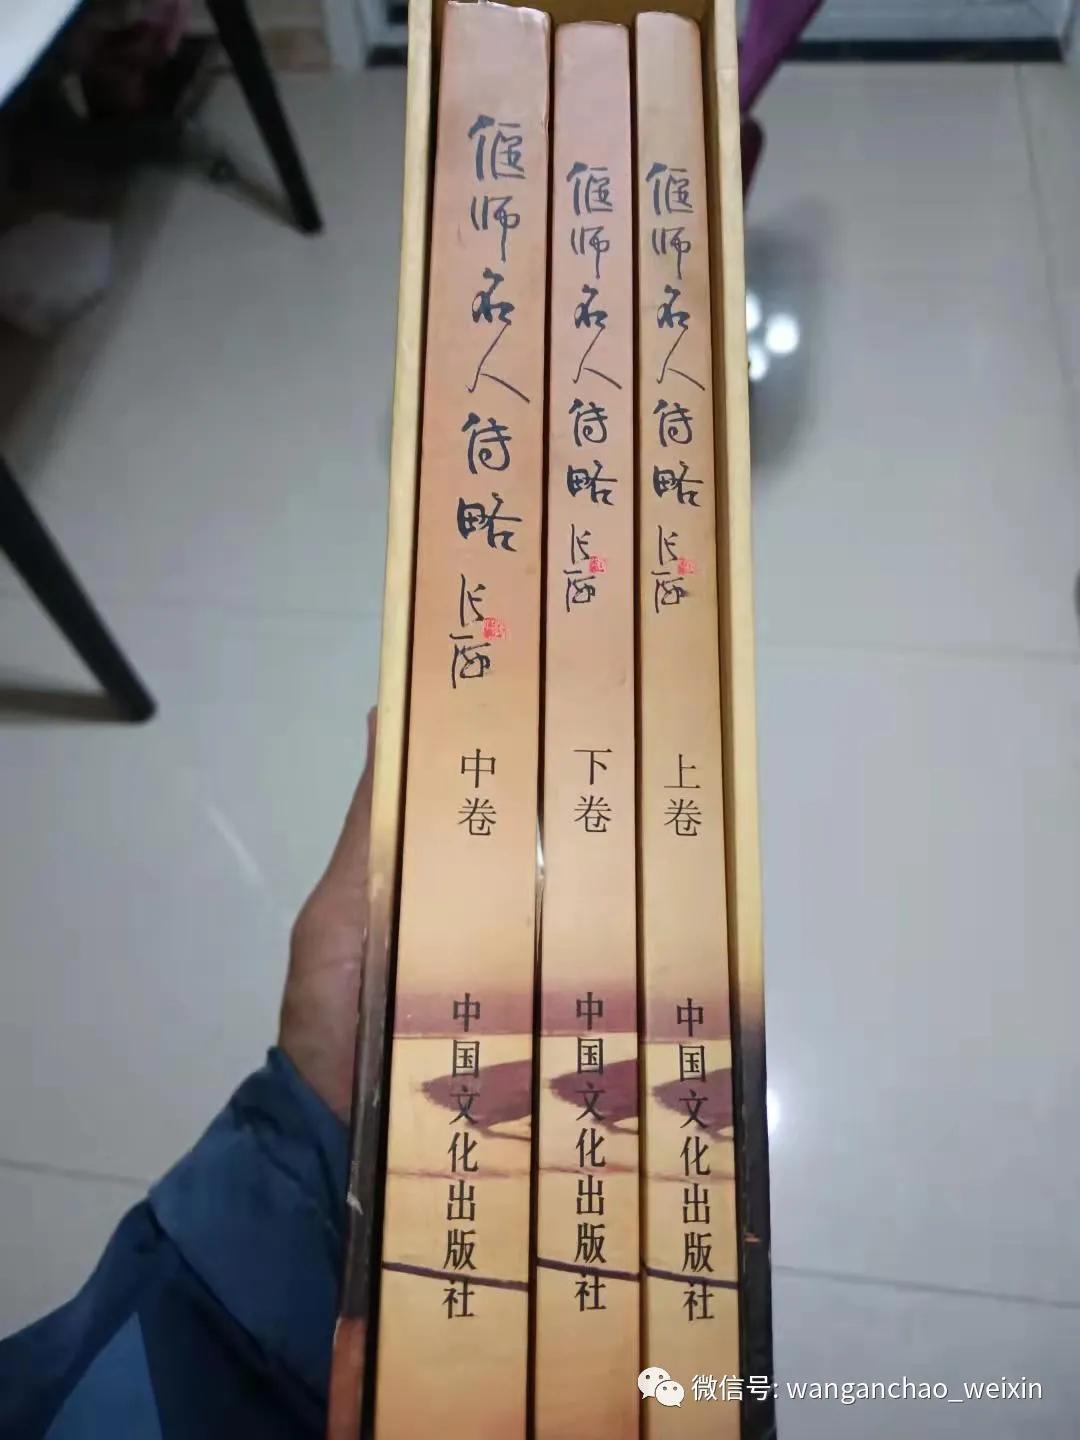 偃师名人传略 张海
中卷
中国文化出版社
偃师名人传略 张海
下卷
中国文化出版社
偃师名人传略 张海
上卷
中国文化出版社
微信号: wanganchao_weixin